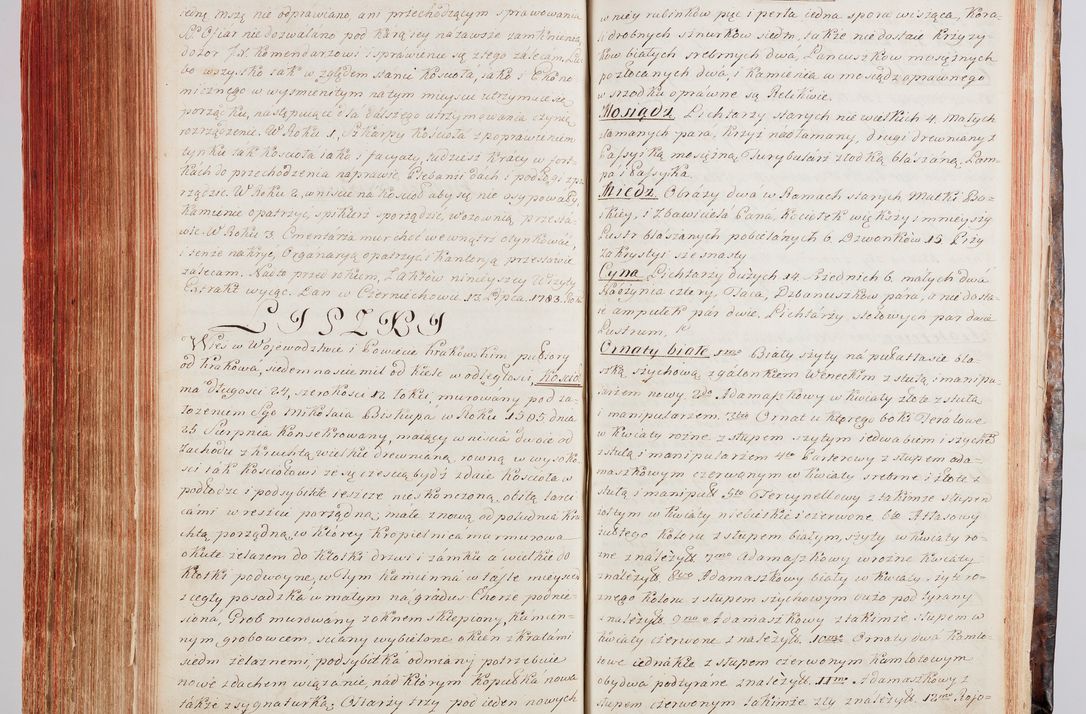 iedną mszą nie odprawiano, ani przechodzącym sprawowania
Ofiar nie dozwalano pod karą iey na zawsze zamknienia
dozor J. X. Komendarzowi i sprawienie są z tego zalecam, Lu=
bo wszystko tak względem stanu Kościoła, iako i Ekono=
micznego w wyśmienitym na tym mieyscu utrzymuie się
porządku, następuiące dla dalszego utrzymowania czynię
rozrządzenie. W Roku 1, Szkarpy Kościoła z poprawieniem
tynku tak Kościoła iako i facyaty, tudziesz kraty w fort=
kach do przechodzenia naprawić, Plebanii dach i podłogi
rządzić. W Roku 2, wniście na Kościoł aby się nie zsypowały
kamienie opatrzyć, spiklerz sporządzić, wozownią przesta=
wić. W Roku 3 Cmentarza mur chcć we wnątrz otynkować,
i tenże nakryć, Organaryą opatrzyć i kantenią przestawić
zalecam. Nadto przed rokiem, z aktow ninieyszey Wizyty
Extrakt wyiąć. Dan w Czernichowie 12 Lipca 1783 Roku
LISZKI
Wieś w Woiewodztwie i Powiecie Krakowskim, puł szory
od Krakowa, siedemnaście mil od Kielc w odległości, Kościoł
ma Długości 24, szerokości 12 łokci, murowany pod za=
łożeniem Sgo Mikołaia Biskupa w Roku 1505 dnia
25 Sierpnia konsekrowany, maiący wniścia dwoie od
Zachodu z kruchtą wielkie drewnianą rowną w wysoko=
ści iak Kościołowi ze są częścią bydź zdaie Kościoła w
podłodze i podsybitke ieszcze nieskończoną, obitą tarci=
cami w reście porządną; małe z nową od południa Kru=
chtą porządną, w ktorey Kropielnica murmurowa
okute żelazem do kłotki drzwi i zamku a wielkie do
kłotki podwoyne, w tym kamienna w tafle mieyscem
z cegły posadzka w małym na gradus Chorze podnie=
siona, Grob murowany z oknem sklepiony, kamien=
nym grobowcem, sciany wybielone, okien z kratami
siedm żelaznemi, podsybitka odmiany potrzebuie
nowe z dachem wiązanie, nad ktorym kopułka nowa
także z sygnaturką, Ołtarzy trzy pod ieden nowych
w niey rubinkow pięć i perła iedna spora wisząca, Kora=
li drobnych sznurkow siedm, także nie dostaie krzyzy=
kow białych srebrnych dwa, Lancuszkow mosiężnych
pozłocanych dwa, i kamienia w mosiądz oprawnego
w srzodku oprawne są Relikwie.
Mosiądz Lichtarzy starych nie wielkich 4, Małych
złamanych para, krzyż nadłamany, drugi drewniany z
Passyiką mosiężną, Turybularz z łodką blaszaną, Lam=
pa i Passyika.
Miedź Obrazy dwa w Ramach starych Matki Bo=
skiey, i Zbawiciela Pana, kociełek większy i mnieyszy
Lustr blaszanych pobielanych 6, Dzwonkow 15 Przy
Zakrystyi szesnasty
Cyna Lichtarzy dużych 14 srzednich 6, małych dwa
Naczynia cztery, Taca, Dzbanuszkow para, a nie dosta=
ie ampułek par dwie. Lichtarzy stołowych par dwie
Lustrum,
Ornaty białe 1mo Biały szyty na puł attasie bla=
szką szychową z galonkiem Weneckim z stułą i manipu=
larzem nowy. 2do Adamaszkowy w kwiaty złote z stułą
i manipularzem. 3tio Ornat u ktorego boki Teralowe
w kwiaty rożne z słupem szytym iedwabiem i szychem
z stułą i manipularzem 4to Parterowy z słupem ada=
maszkowym czerwonym w kwiaty srebrne i złote z
stułą i manipuł 5to Tercynellowy z takimże słupem
zołtym w kwiaty niebieskie i czerwone. 6to Attasowy
żułtego koloru z słupem białym, szyty w kwiaty ro=
żne z należyt. 7mo Adamaszkowy w rożne kwiaty
z należyt. 8vo Adamaszkowy biały w kwiaty, szyt ro=
żnego koloru z słupem szychowym dużo podstarzany
z należyt. 9no Adamaszkowy z takimże słupem w
kwiaty czerwone z należyt. 10mo Ornaty dwa kamlo=
towe iednakie z słupem czerwonym kamlotowym
obydwa podszarane z należyt. 11mo Adamaszkowy z
słupem czerwonym takimże zły z należyt. 12mo